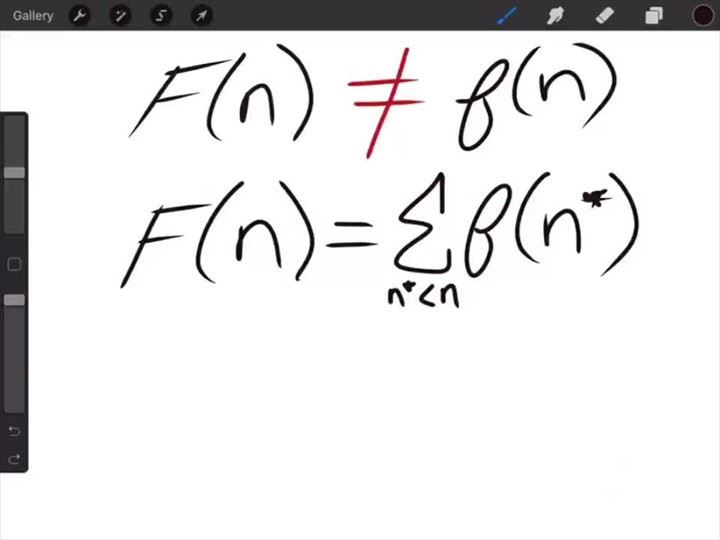 Gallery
F(n) ≠ f(n)
F(n) = ∑ f(n*)
n* < n